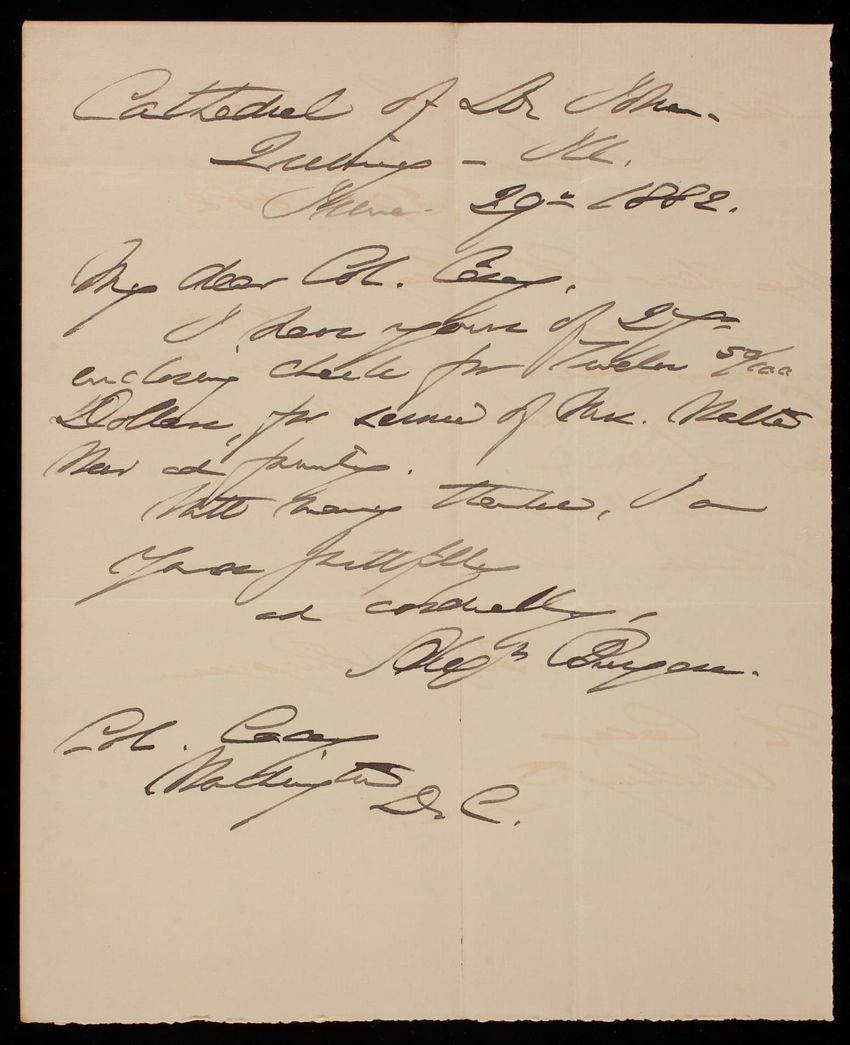 Cathedral of St. John.
Quincy - Ill.
June 29th 1882.
My dear Col. Casey,
I have yours of 27th
enclosing check for Twelve 50/100
Dollars, for service of Mrs. Walter
and family.
With many thanks, I am
Yours faithfully
and cordially,
Alex Burgess.
Col. Casey
Washington
D. C.